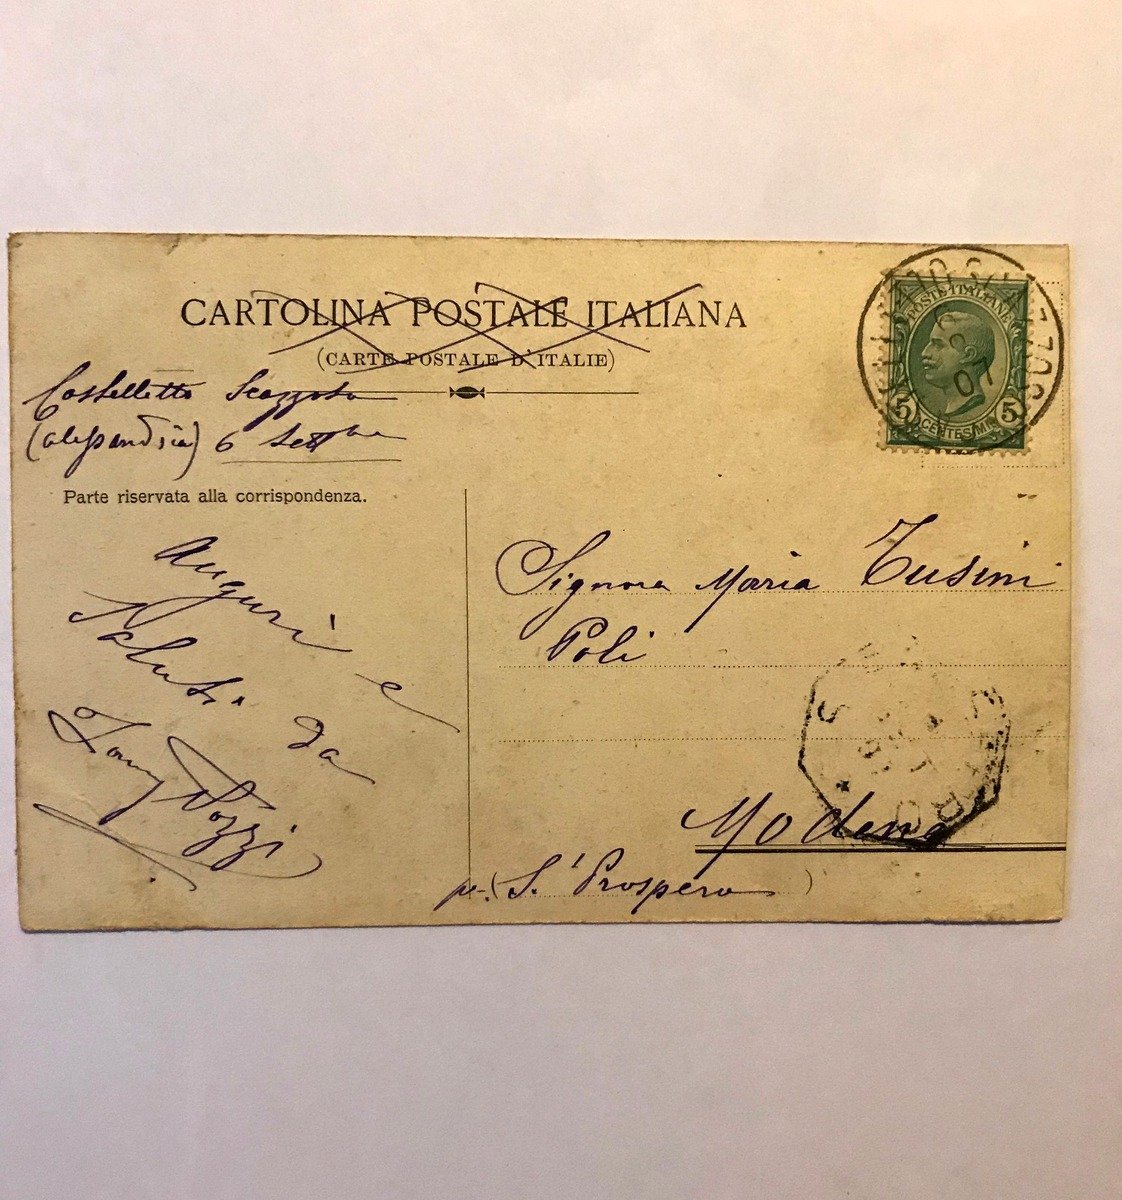 CARTOLINA POSTALE ITALIANA
(CARTE POSTALE D'ITALIE)
Castelletto Scazzoso
(Alessandria) 6 Settbre
Parte riservata alla corrispondenza.
Auguri e
Saluti da
Pozzi
POSTE ITALIANE
5 CENTESIMI 5
07
Signora Maria Tusini
Poli
Modena
S. Prospero